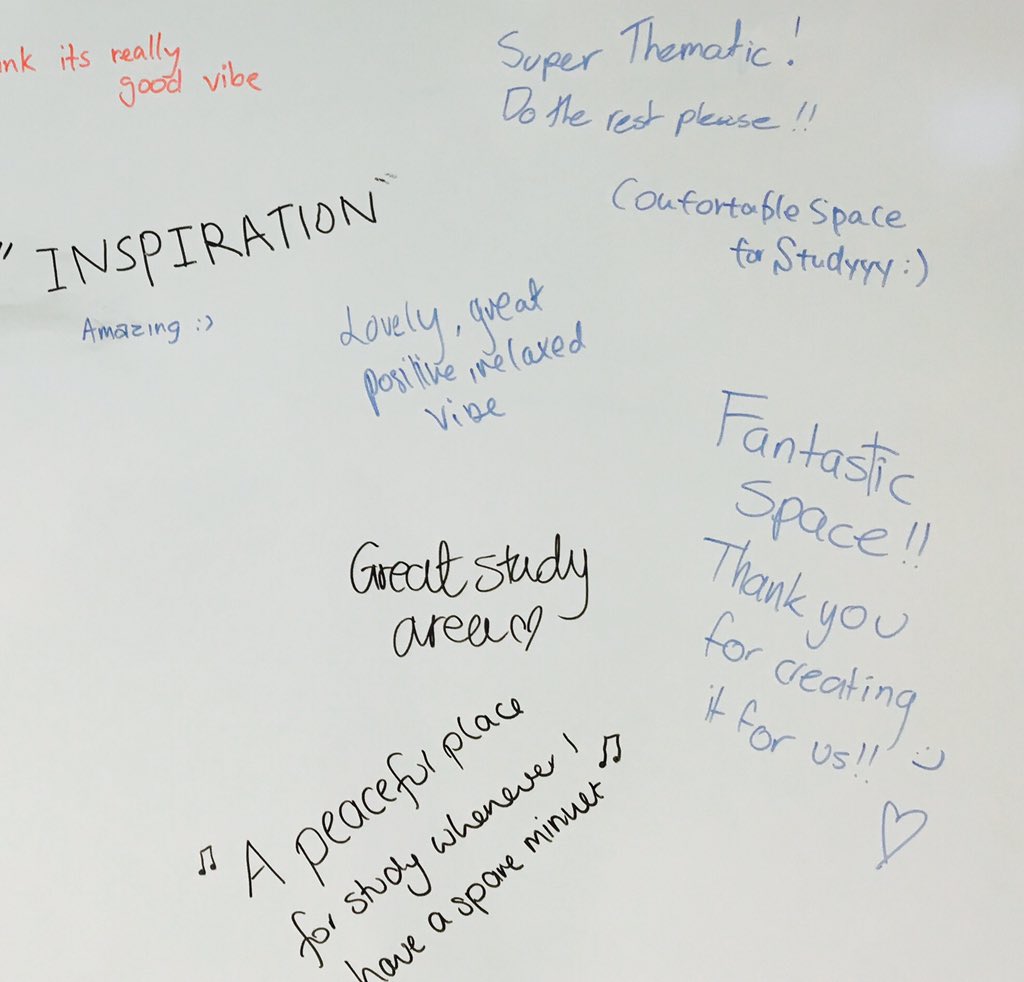 nk its really
good vibe
Super Thematic!
Do the rest please!!
"INSPIRATION"
Coufortable Space
for Studyyy :)
Amazing :)
Lovely, great
positive, relaxed
vibe
Fantastic
Space!!
Thank you
for creating
it for us!! :)
Great study
area♡
♫ A peaceful place
for study whenever I
have a spare minuet ♫